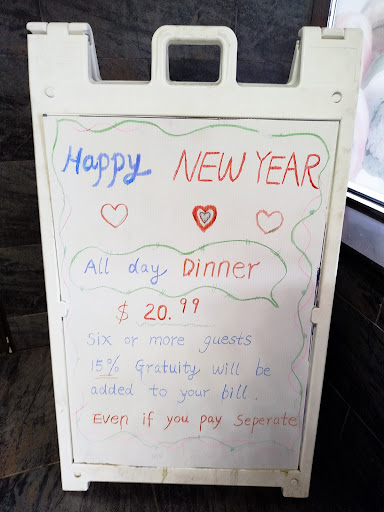 Happy NEW YEAR
All day Dinner
$ 20.99
Six or more guests
15% Gratuity will be
added to your bill.
Even if you pay Seperate